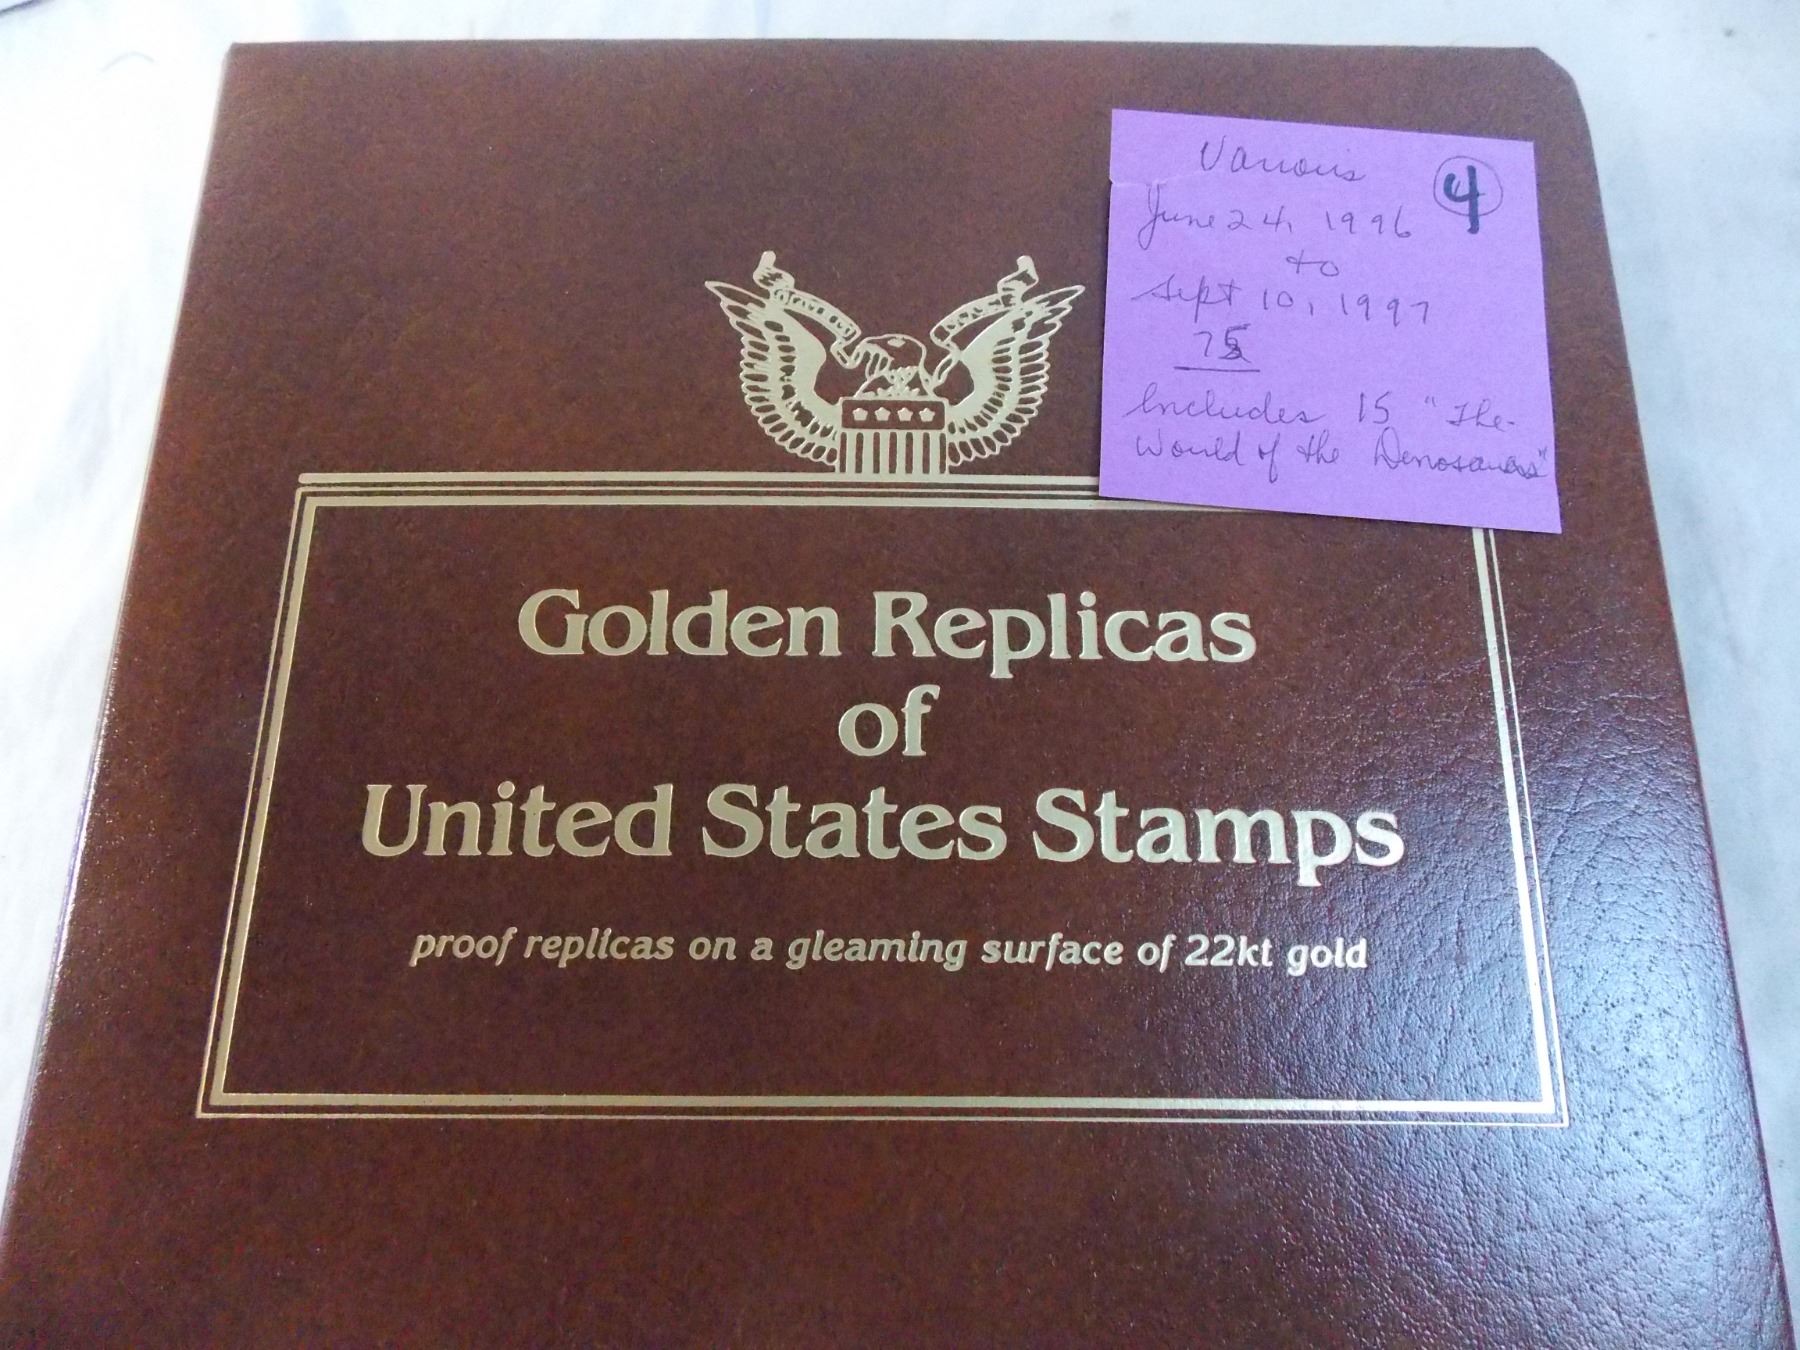 Various
4
June 24, 1996
to
Sept 10, 1997
75
Includes 15 "The
World of the Denosaurs"
Golden Replicas
of
United States Stamps
proof replicas on a gleaming surface of 22kt gold